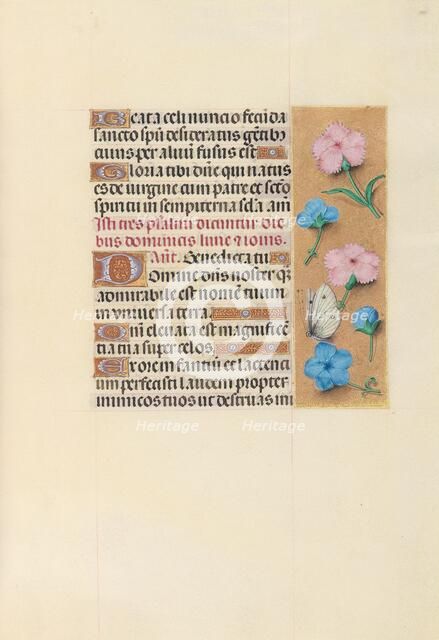 Beata celi nuncio fecūda
sancto spū desiteratus gentib
cuius per aluū fusus est.
Gloria tibi dñe qui natus
es de virgine cum patre et scto
spiritu in sempiterna scla am̄
Isti tres psalmi dicuntur die
bus dominicis lune et iouis.
Ant. Benedicta tu
Domine dñs noster q̄
admirabile est nomē tuum
in vniuersa terra.
Qm̄ eleuata est magnificē
tia tua super celos.
Ex ore infantiū et lactenti
um perfecisti laudem propter
inimicos tuos ut destruas ini
Heritage Heritage Heritage
Heritage Heritage